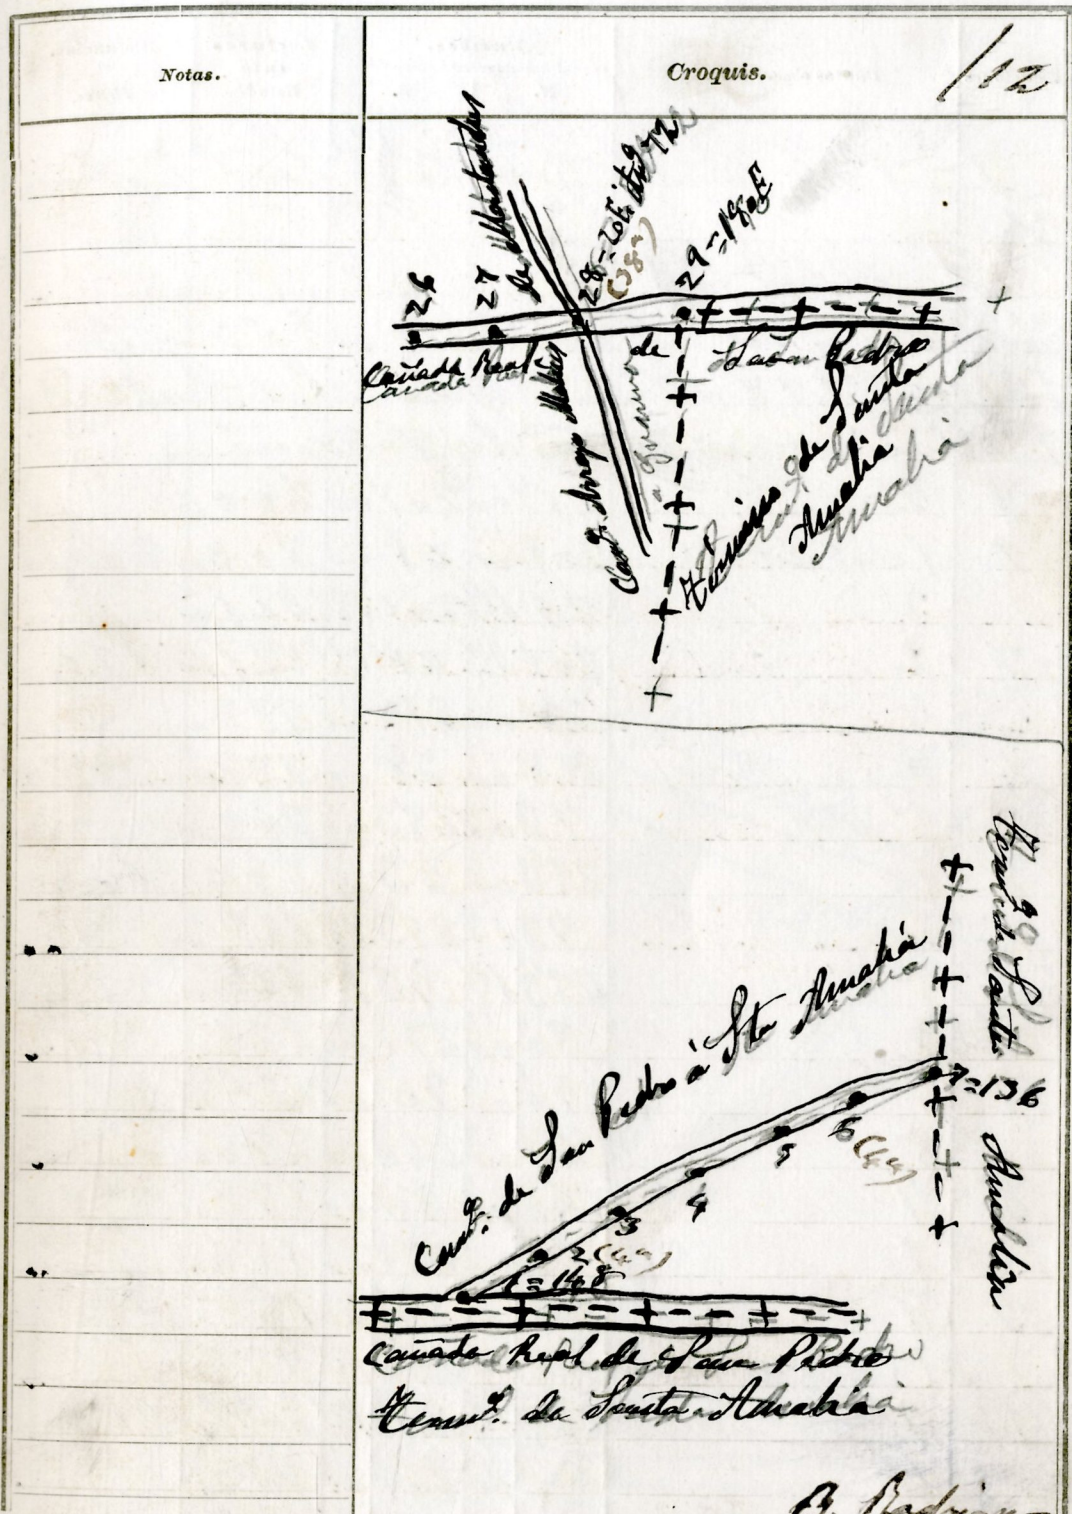 Notas.
Croquis.
112
26
27
28
29=180E
Cañada Real
de San Pedro
Camº. Arroyo
Término de Santa
Amalia
Termº. de Santa Amalia
Camº. de San Pedro á Sta Amalia
7=136
6 (4a)
5
4
3
2 (4a)
1=148
Cañada Real de San Pedro
Termº. de Santa Amalia